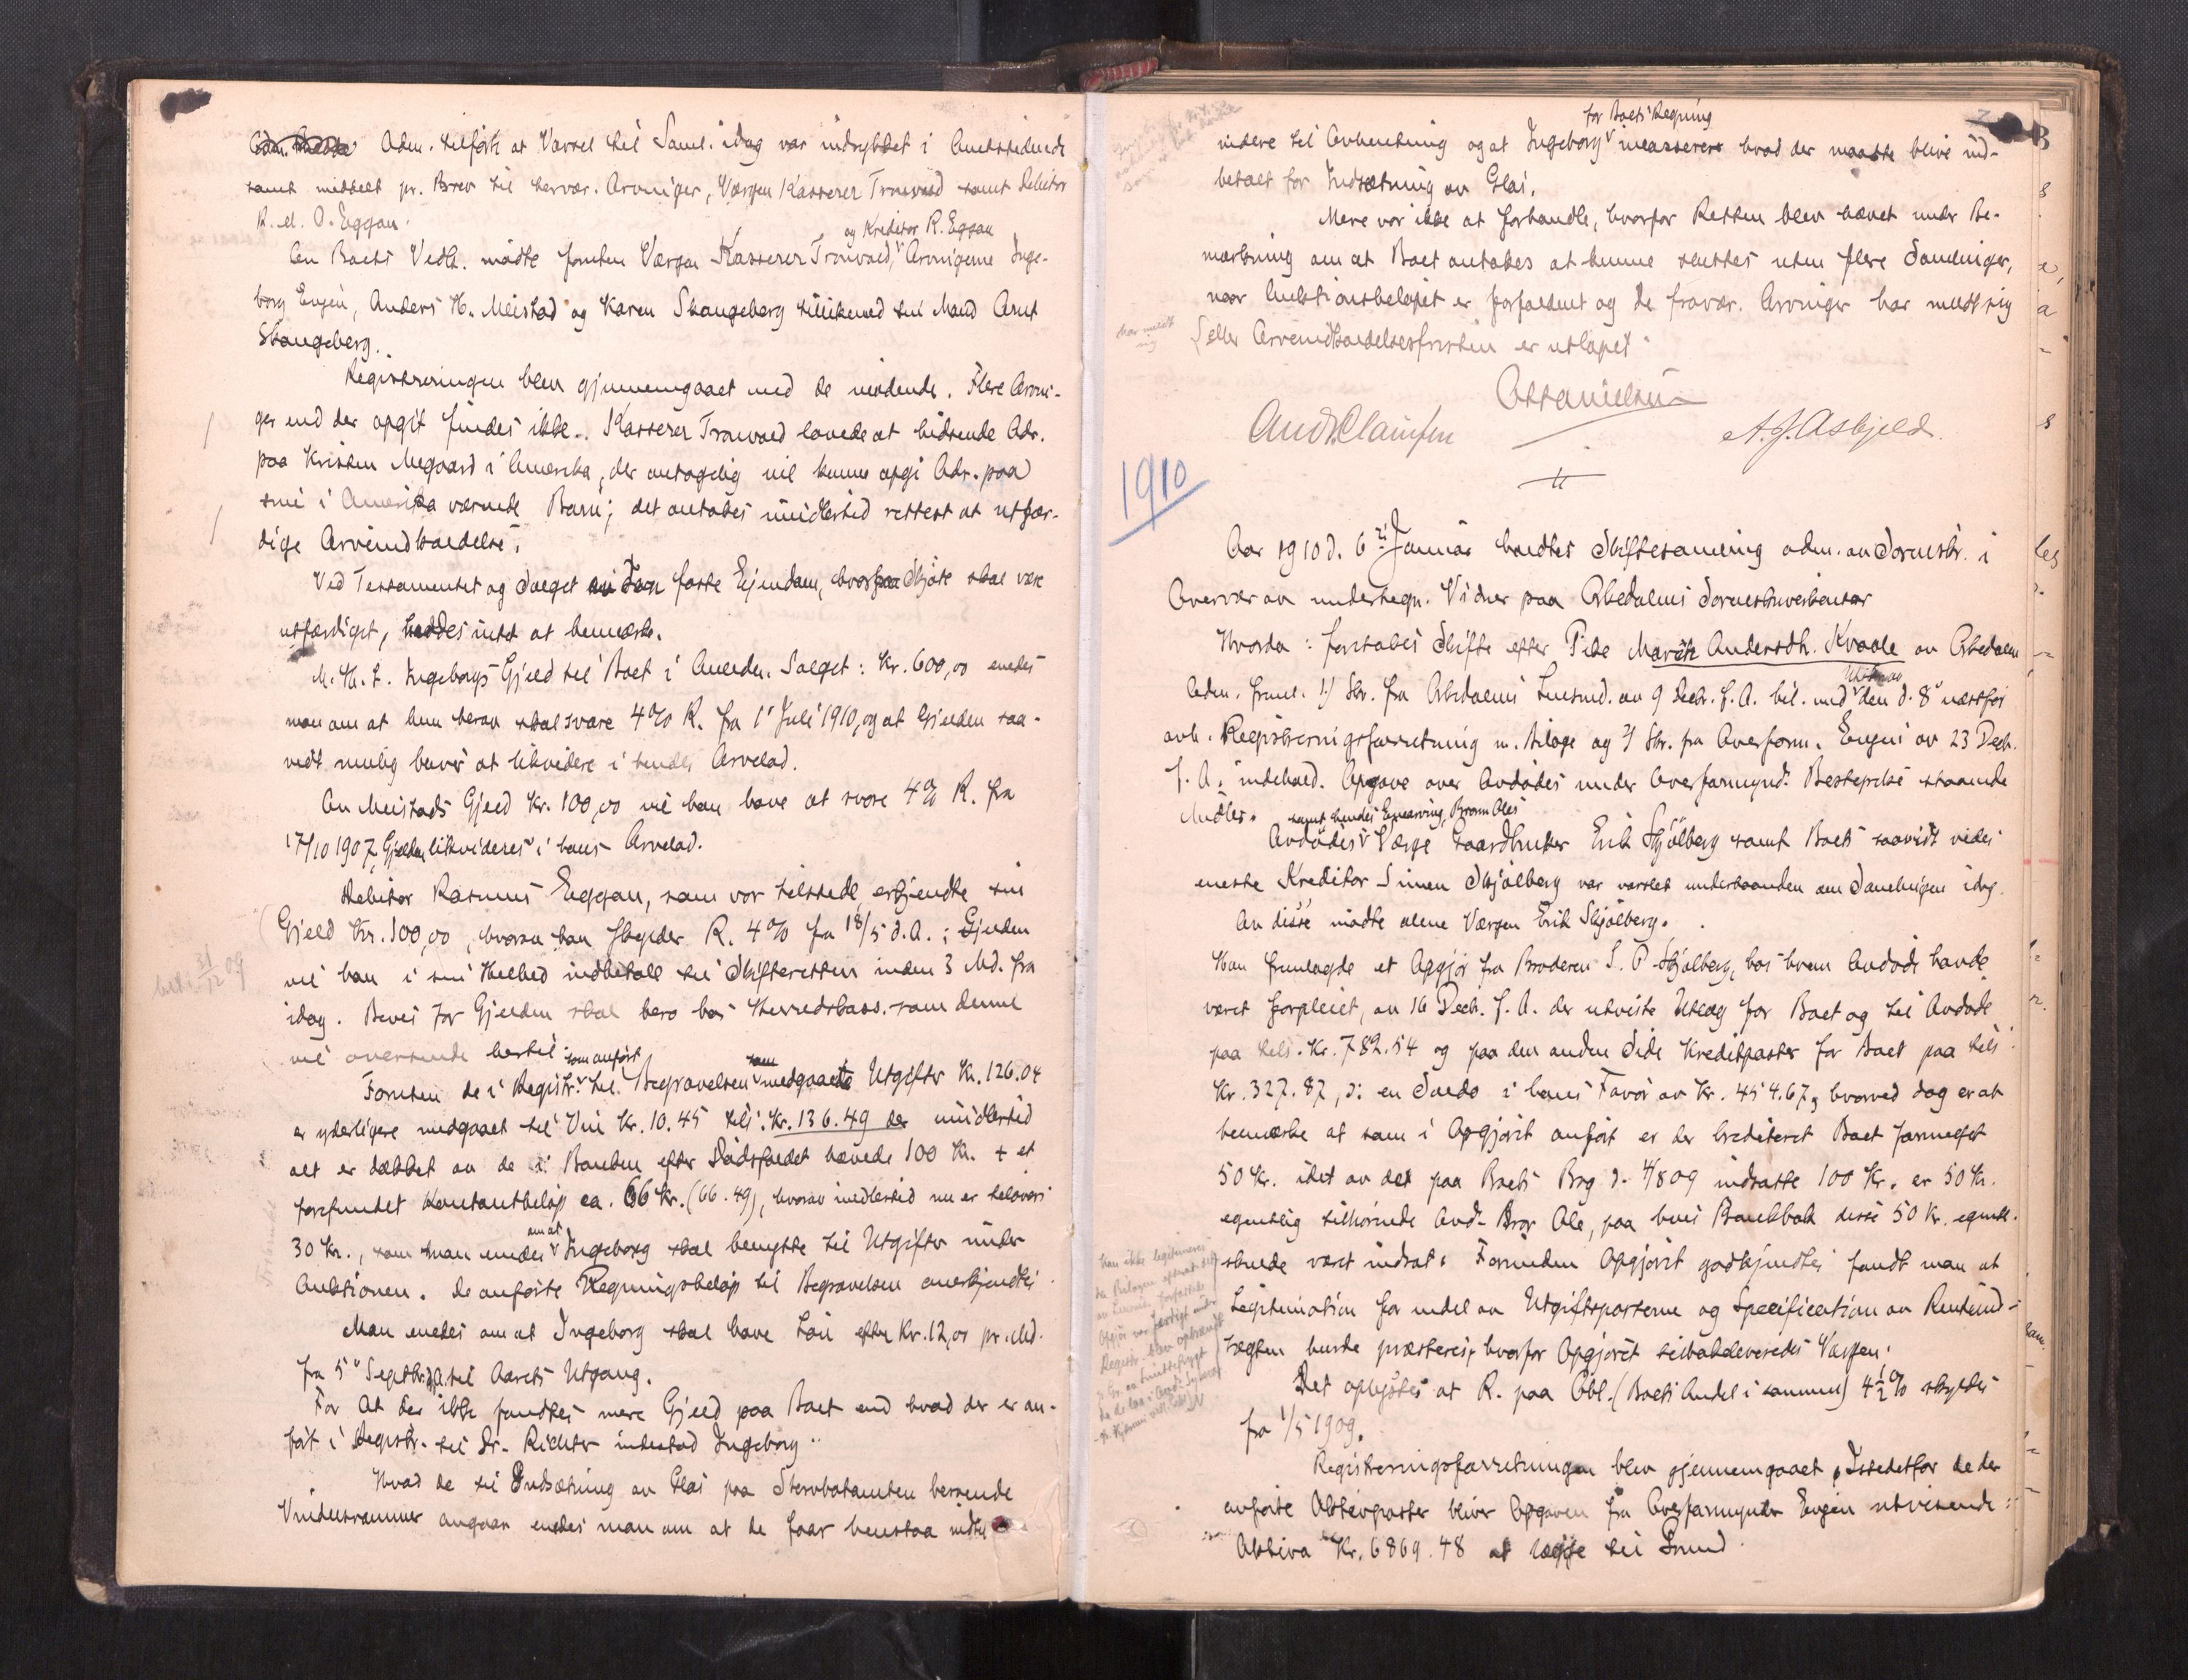 Adm. tilførte at Varsel til Saml. idag var indrykket i Amtstidende
samt meddelt pr. Brev til herv. Arvinger, Værgen Kasserer Tronvold samt Debitor
R. O. Eggan.
og Kreditor R. Eggan
Av Boets Vedk. mødte foruten Værgen Kasserer Tronvold, Arvingerne Inge-
borg Engen, Anders H. Meistad og Karen Skaugeberg tillikemed sin Mand Arnt
Skaugeberg.
Registreringen blev gjennemgaaet med de mødende. Flere Arvin-
ger end der opgit findes ikke. Kasserer Tronvold lovede at tilsende Adr.
paa Kristen Megaard i Amerika, der antagelig vil kunne opgi Adr. paa
sine i Amerika værende Barn; det antages imidlertid rettest at utfær-
dige Arveindkaldelse.
Ved Testamentet og Salget av den faste Eiendom, hvorpaa Skjøte skal være
utfærdiget, havdes intet at bemærke.
M. H. t. Ingeborgs Gjeld til Boet i Anledn. Salget: Kr. 600,00 enedes
man om at hun herav skal svare 4% R. fra 1' Juli 1910, og at Gjelden saa-
vidt mulig bliver at likvidere i hendes Arvelod.
Av Meistads Gjeld Kr. 100,00 vil han have at svare 4% R. fra
17/10 1907, Gjælden likvideres i hans Arvelod.
Debitor Rasmus Eggan, som var tilstede, erkjendte sin
Gjeld Kr. 100,00, hvorav han skylder R. 4% fra 18/5 d.A.; Gjelden
vil han i sin Helhed indbetale til Skifteretten inden 3 Md. fra
idag. Bevis for Gjelden skal bero hos Herredskass. som denne
vil oversende hertil.
bet. 31/12 09
som anført
som
Foruten de i Registr. til Begravelsen medgaaede Utgifter Kr. 126.04
er yderligere medgaaet til Vin Kr. 10.45 tils. Kr. 136.49 der imidlertid
alt er dækket av de i Banken efter Dødsfaldet hævede 100 Kr. + et
forefundet Kontantbeløp ca. 66 Kr. (66.49), hvorav imidlertid nu er tilovers
om at
30 Kr., som man enedes Ingeborg skal benytte til Utgifter under
Auktionen. De anførte Regningsbeløp til Begravelsen anerkjendtes.
Man enedes om at Ingeborg skal have Løn efter Kr. 12,00 pr. Md.
fra 5' Septbr. d.A. til Aarets Utgang.
For at der ikke fandtes mere Gjeld paa Boet end hvad der er an-
ført i Registr. til Dr. Richter indestod Ingeborg.
Hvad de til Indsætning av Glas paa Stervbotomten beroende
Vindusrammer angaar enedes man om at de faar henstaa indtil
for Boets Regning
videre til Avhentning og at Ingeborg inkasserer hvad der maatte blive ind-
betalt for Indsætning av Glas.
Mere var ikke at forhandle, hvorfor Retten blev hævet under Be-
mærkning om at Boet antages at kunne sluttes uten flere Samlinger,
naar Auktionsbeløpet er forfaldent og de fravær. Arvinger har meldt sig
eller Arveindkaldelsesfristen er utløpet.
har meldt
sig
And. Clausen
A. J. Asbjeld.
1910
Aar 1910 d. 6' Januar holdtes Skiftesamling adm. av Sorenskr. i
Overvær av undertegn. Vidner paa Orkedalens Sorenskriverkontor
Hvorda: foretokes Skifte efter Pike Marit Andersdtr. Kvaale av Orkedalen
Adm. freml. 1) Skr. fra Orkedalens Lensmd. av 9 Decbr. f. A. bil. med den d. 8' næstfør
avh. Registreringsforretning m. Bilage og 2) Skr. fra Overform. Engen av 23 Decb.
f. A. indehold. Opgave over Avdødes under Overformynd. Bestyrelse staaende
Midler.
samt hendes Enearving, Broren Ole's
Avdødes Værge Gaardbruker Erik Skjølberg samt Boets saavidt vides
eneste Kreditor Simen Skjølberg var varslet underhaanden om Samlingen idag.
Av disse mødte alene Værgen Erik Skjølberg.
Han fremlagde et Opgjør fra Broderen S. P. Skjølberg, hos hvem Avdøde havde
været forpleiet, av 16 Decb. f. A. der utviste Utlæg for Boet og til Avdøde
paa tils. Kr. 782.54 og paa den anden Side Kreditposter for Boet paa tils.
Kr. 327.87, ɔ: en Saldo i hans Favør av Kr. 454.67, hvorved dog er at
bemærke at som i Opgjøret anført er der krediteret Boet formeget
50 Kr. idet av det paa Boets Bog d. 4/8 09 indsatte 100 Kr. er 50 Kr.
egentlig tilhørende Avd. Bror Ole, paa hvis Bankbok disse 50 Kr. egentl.
skulde været indsat. Forinden Opgjøret godkjendtes fandt man at
Legitimation for endel av Utgiftsposterne og Specification av Renteind-
tægten burde præsteres, hvorfor Opgjøret tilbakeleveredes Værgen.
Det oplystes at R. paa Obl. (Boets Andel i samme) 4½% skyldes
fra 1/5 1909.
Registreringsforretningen blev gjennemgaaet. Istedetfor de der
anførte Aktivposter bliver Opgaven fra Overformynder Engen utvisende
Aktiva Kr. 6869.48 at lægge til Grund.